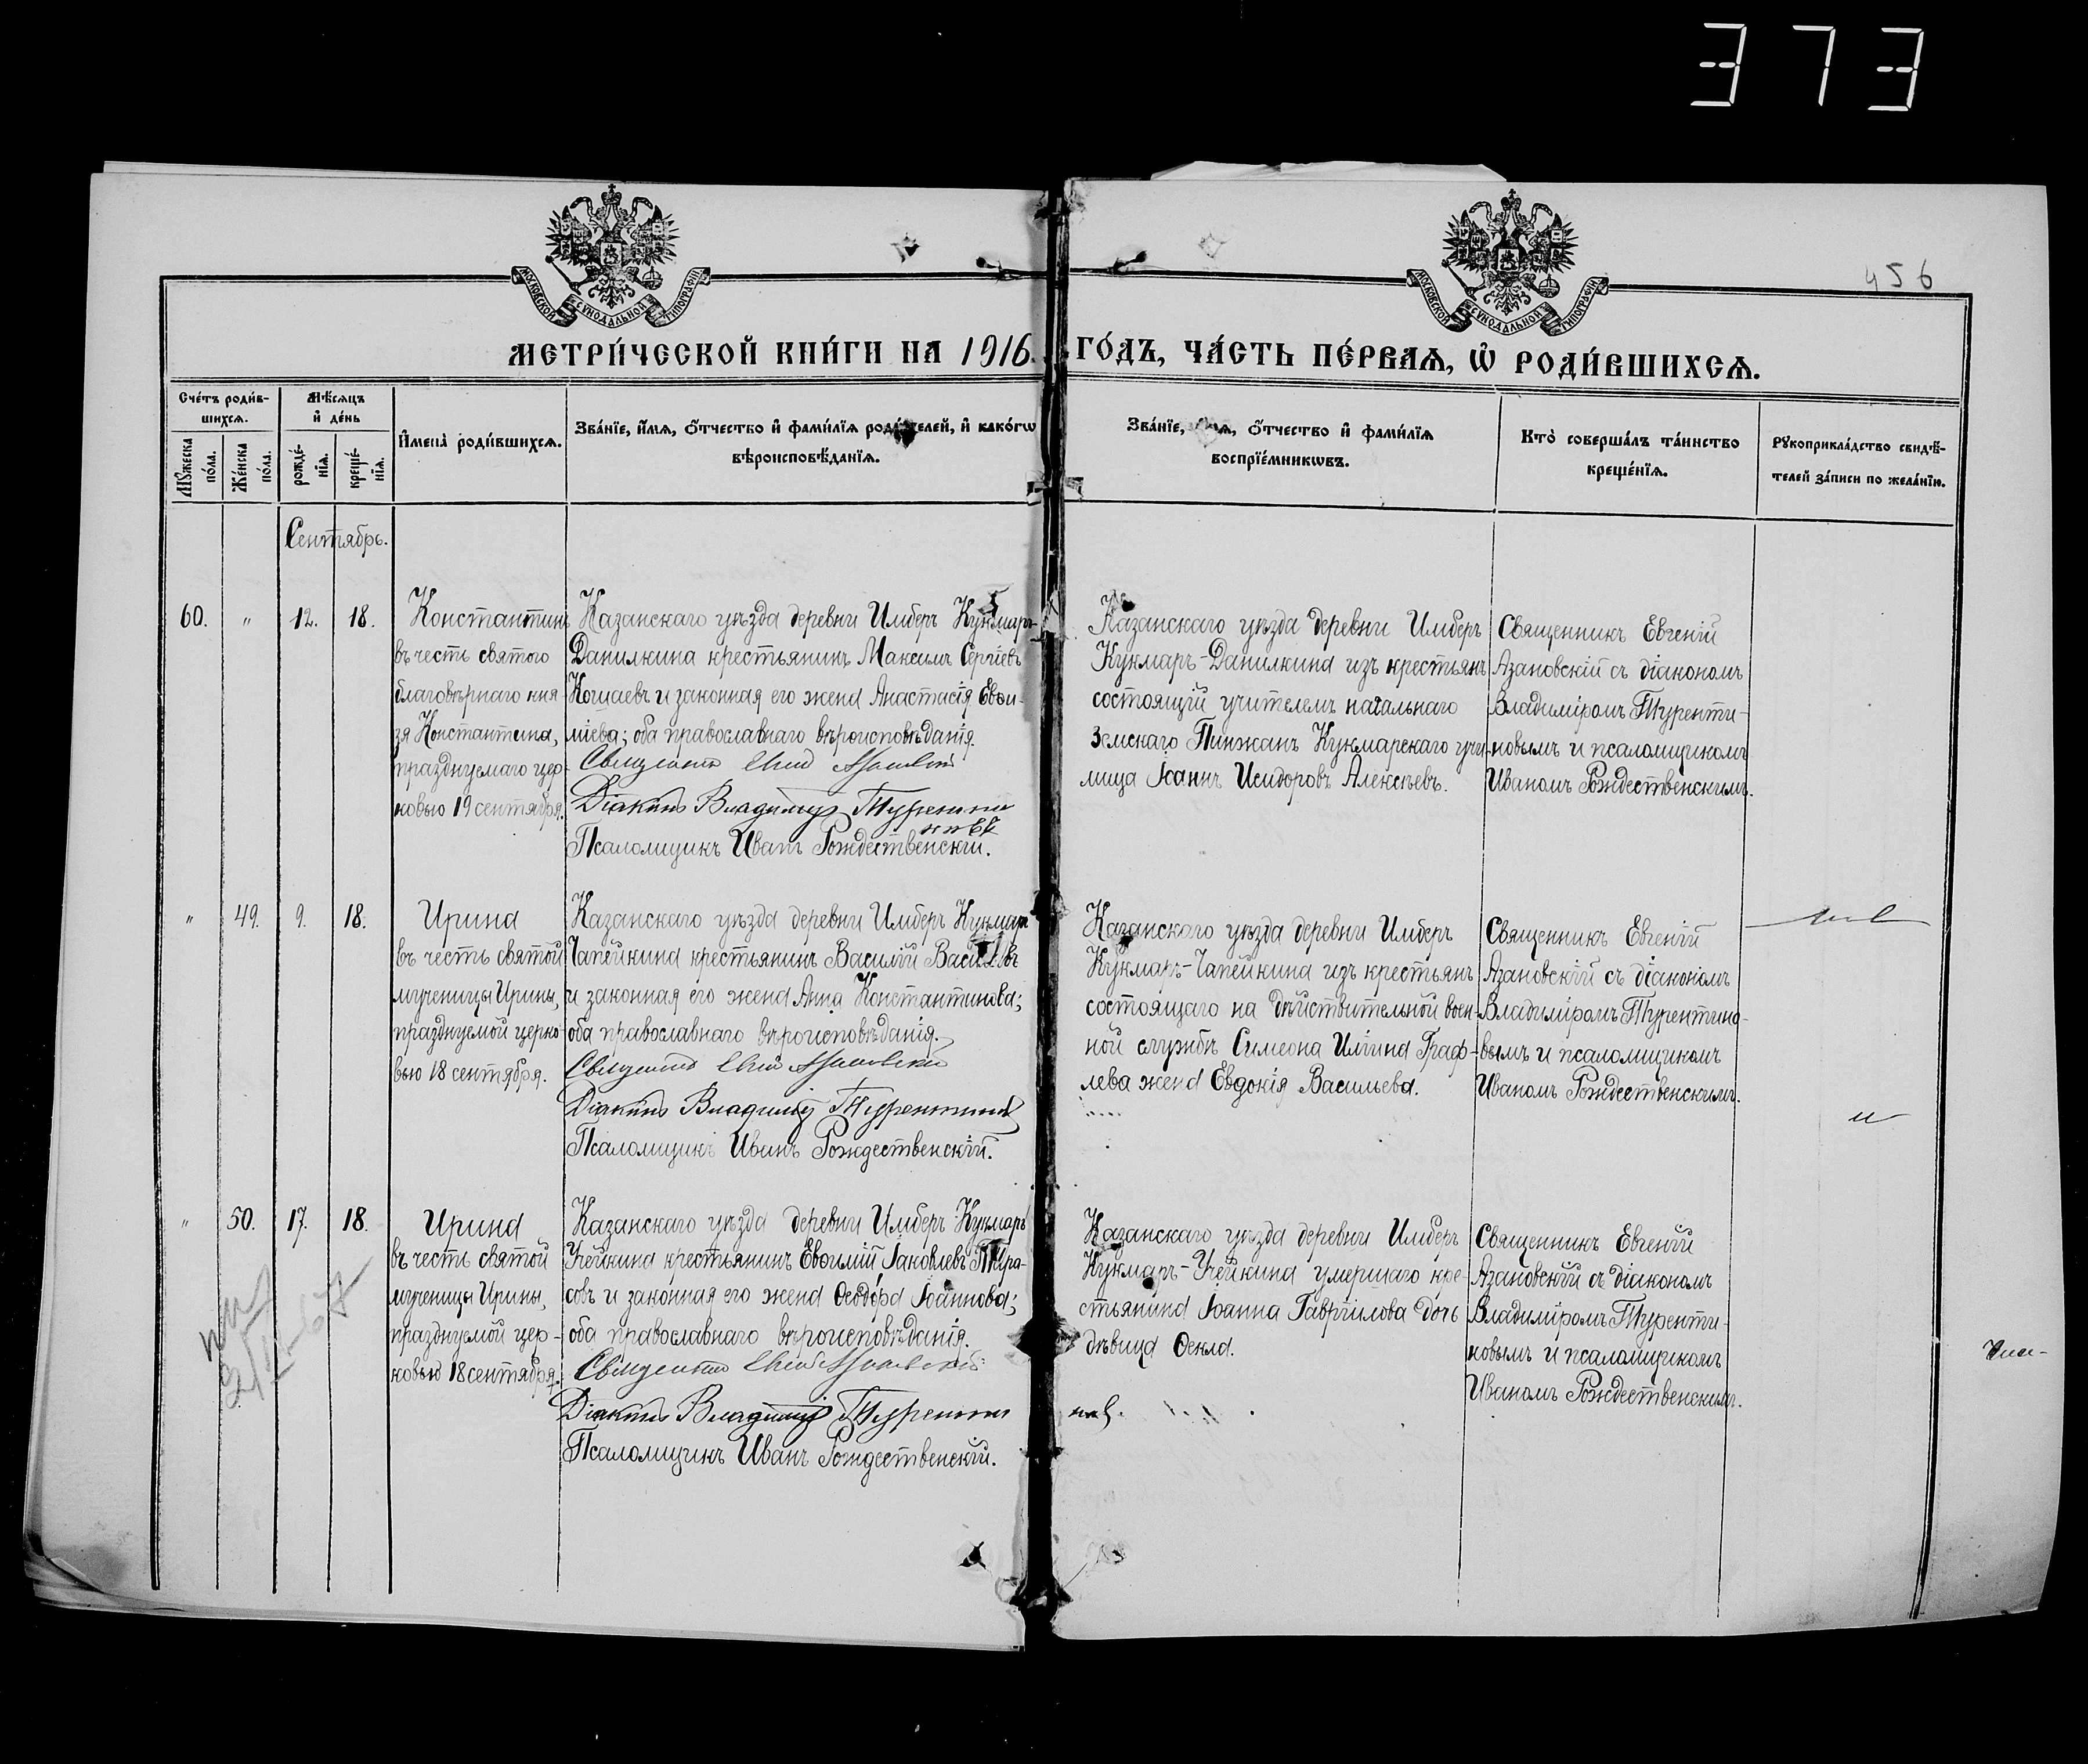 373
456
МОСКОВСКОЙ СѴНОДАЛЬНОЙ ТИПОГРАФІИ
МОСКОВСКОЙ СѴНОДАЛЬНОЙ ТИПОГРАФІИ
МЕТРИ́ЧЕСКОЙ КНИ́ГИ НА 1916. ГО́ДЪ, ЧА́СТЬ ПЕ́РВАѦ, Ѽ РОДИ́ВШИХСѦ.
Сче́тъ роди́в-
шихсѧ.
Мꙋ́жеска
по́ла.
Же́нска
по́ла.
Мѣ́сѧцъ
и҆ де́нь
рожде́-
нїѧ.
креще́-
нїѧ.
И҆мена̀ роди́вшихсѧ.
Зва́нїе, и҆́мѧ, ѻ҆́тчество и҆ фами́лїѧ роди́телей, и҆ како́гѡ
вѣроисповѣ́данїѧ.
Зва́нїе, и҆́мѧ, ѻ҆́тчество и҆ фами́лїѧ
воспрїе́мникѡвъ.
Кто̀ соверша́лъ та́инство
креще́нїѧ.
Рꙋкоприкла́дство свидѣ́-
телей за́писи по жела́нїю.
Сентябрь.
60. " 12. 18.
Константинъ
въ честь святого
благовѣрнаго кня-
зя Константина,
празднуемаго цер-
ковью 19 сентября.
Казанскаго уѣзда деревни Имберъ Кукмаръ-
Данилкина крестьянинъ Максимъ Сергіевъ
Кошаевъ и законная его жена Анастасія Евѳи-
міева; оба православнаго вѣроисповѣданія.
Священникъ
Діаконъ Владиміръ Турентиновъ
Псаломщикъ Иванъ Рождественскій.
Казанскаго уѣзда деревни Имберъ
Кукмаръ-Данилкина изъ крестьянъ
состоящій учителемъ начальнаго
земскаго Пинжанъ Кукмарскаго учи-
лища Іоаннъ Исидоровъ Алексѣевъ.
Священникъ Евгеній
Азановскій съ діакономъ
Владиміромъ Туренти-
новымъ и псаломщикомъ
Иваномъ Рождественскимъ.
" 49. 9. 18.
Ирина
въ честь святой
мученицы Ирины,
празднуемой церко-
вью 18 сентября.
Казанскаго уѣзда деревни Имберъ Кукмаръ
Чапейкина крестьянинъ Василій Васильевъ
и законная его жена Анна Константинова;
оба православнаго вѣроисповѣданія.
Священникъ
Діаконъ Владиміръ Турентиновъ
Псаломщикъ Иванъ Рождественскій.
Казанскаго уѣзда деревни Имберъ
Кукмаръ-Чапейкина изъ крестьянъ
состоящаго на дѣйствительной воен-
ной службѣ Симеона Ильина Граф-
лева жена Евдокія Васильева.
Священникъ Евгеній
Азановскій съ діакономъ
Владиміромъ Турентино-
вымъ и псаломщикомъ
Иваномъ Рождественскимъ.
" 50. 17. 18.
Ирина
въ честь святой
мученицы Ирины,
празднуемой цер-
ковью 18 сентября.
Казанскаго уѣзда деревни Имберъ Кукмаръ
Учейкина крестьянинъ Евѳимій Іаковлевъ Тара-
совъ и законная его жена Ѳеодора Іоаннова;
оба православнаго вѣроисповѣданія.
Священникъ
Діаконъ Владиміръ Турентиновъ
Псаломщикъ Иванъ Рождественскій.
Казанскаго уѣзда деревни Имберъ
Кукмаръ-Учейкина умершаго кре-
стьянина Іоанна Гавріилова дочь
дѣвица Ѳекла.
Священникъ Евгеній
Азановскій съ діакономъ
Владиміромъ Туренти-
новымъ и псаломщикомъ
Иваномъ Рождественскимъ.